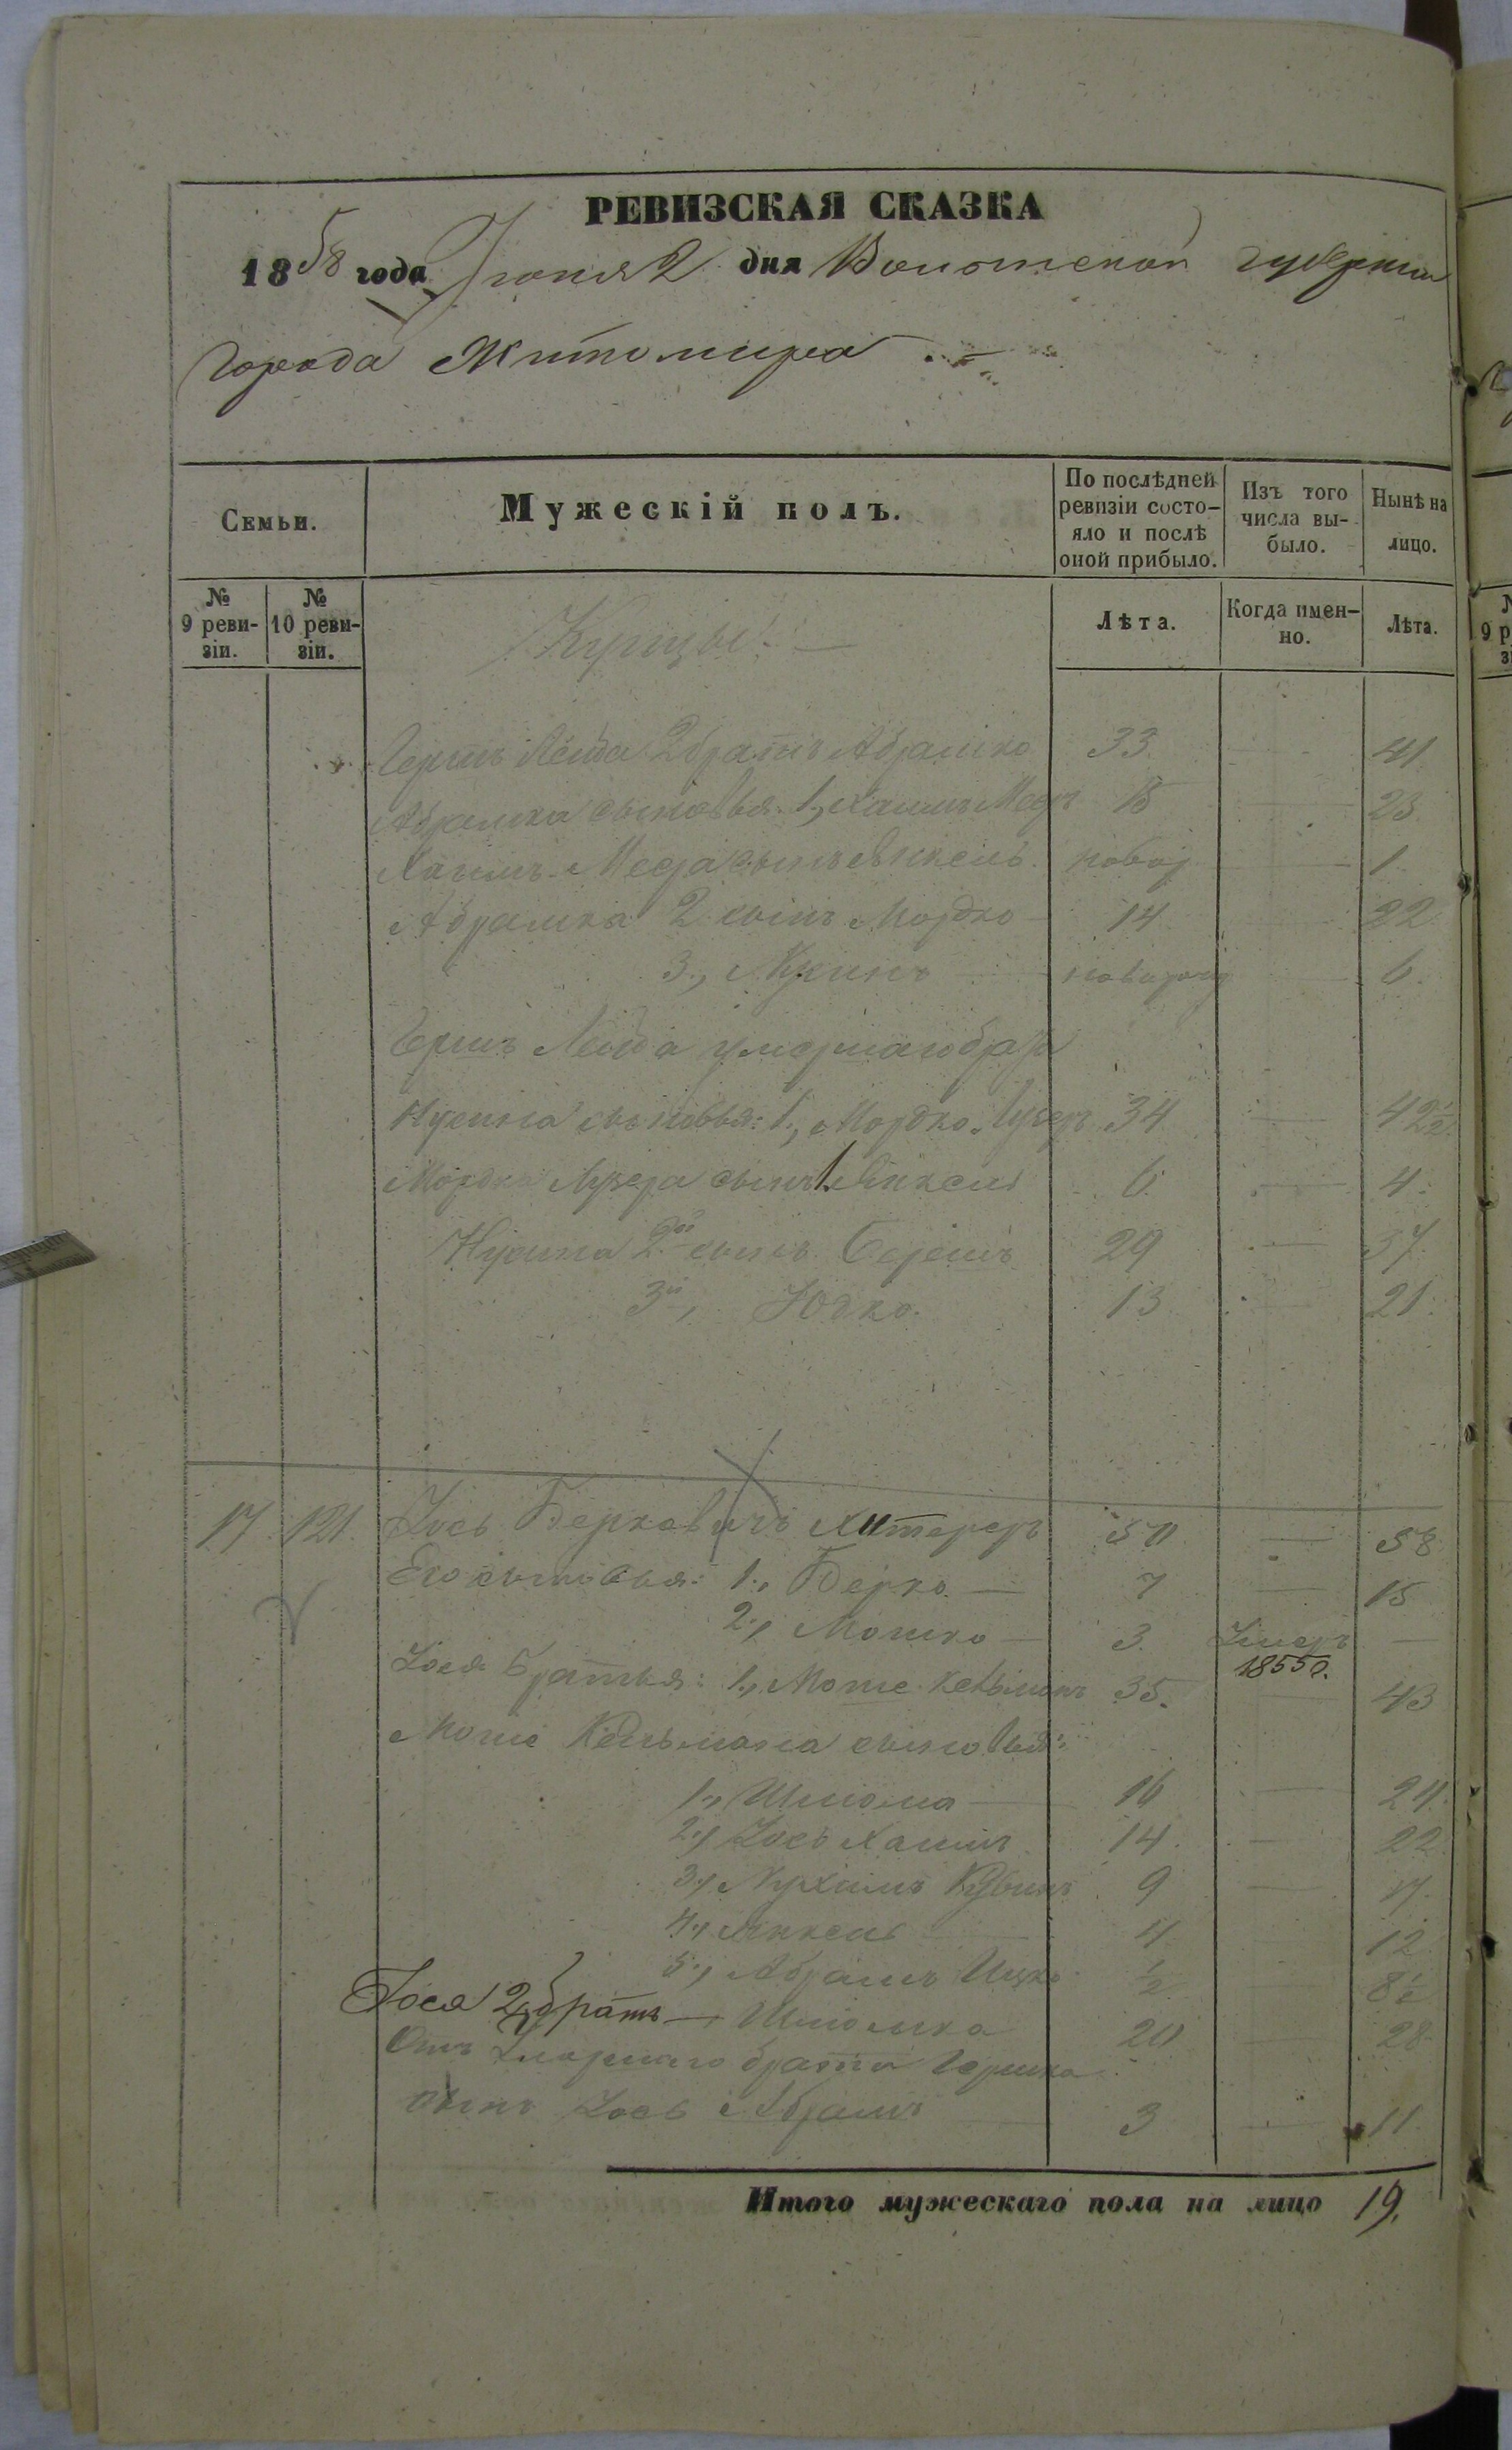 РЕВИЗСКАЯ СКАЗКА
1858 года Іюня 2 дня Волынской губерніи
Города Житомира
Семьи. Мужескій полъ. По послѣдней ревизіи состояло и послѣ оной прибыло. Изъ того числа выбыло. Нынѣ на лицо.
№ 9 ревизіи. № 10 ревизіи. Лѣта. Когда именно. Лѣта.
Купцы:
Герша Лейба 2 братъ Абрамко 33 — 41
Абрамка сыновья: 1, Хаимъ Меер 15 — 23
Хаимъ Меера сынъ Янкель новор — 1
Абрамка 2 сынъ Мордко 14 22
3, Нусинъ новорожд 6
Гершъ Лейба умершаго брата
Нусина сыновья: 1, Мордко Лузеръ 34 — 42½
Мордко Лузера сынъ 1. Янкель 6 — 4
Нусина 2й сынъ Берішъ 29 — 37
3й, Юдко 13 — 21
17. 121. Іось Берковичъ Хитереръ 50 — 58
Его сыновья: 1, Берко 7 — 15
2, Мошко 3 Умеръ 1855 г. —
Іося братья: 1, Моше Кельманъ 35 — 43
Моше Кельмана сыновья:
1, Шлiома 16 — 24
2, Іось Хаимъ 14 — 22
3, Нухимъ 9 — 17
4, Янкель 4 — 12
5, Абрамъ Ицко ½ 8½
Іося 2, братъ — Шлiомка 20 — 28
Отъ Умершаго брата Гершка
сынъ Іось Абрамъ 3 — 11
Итого мужескаго пола на лицо 19.